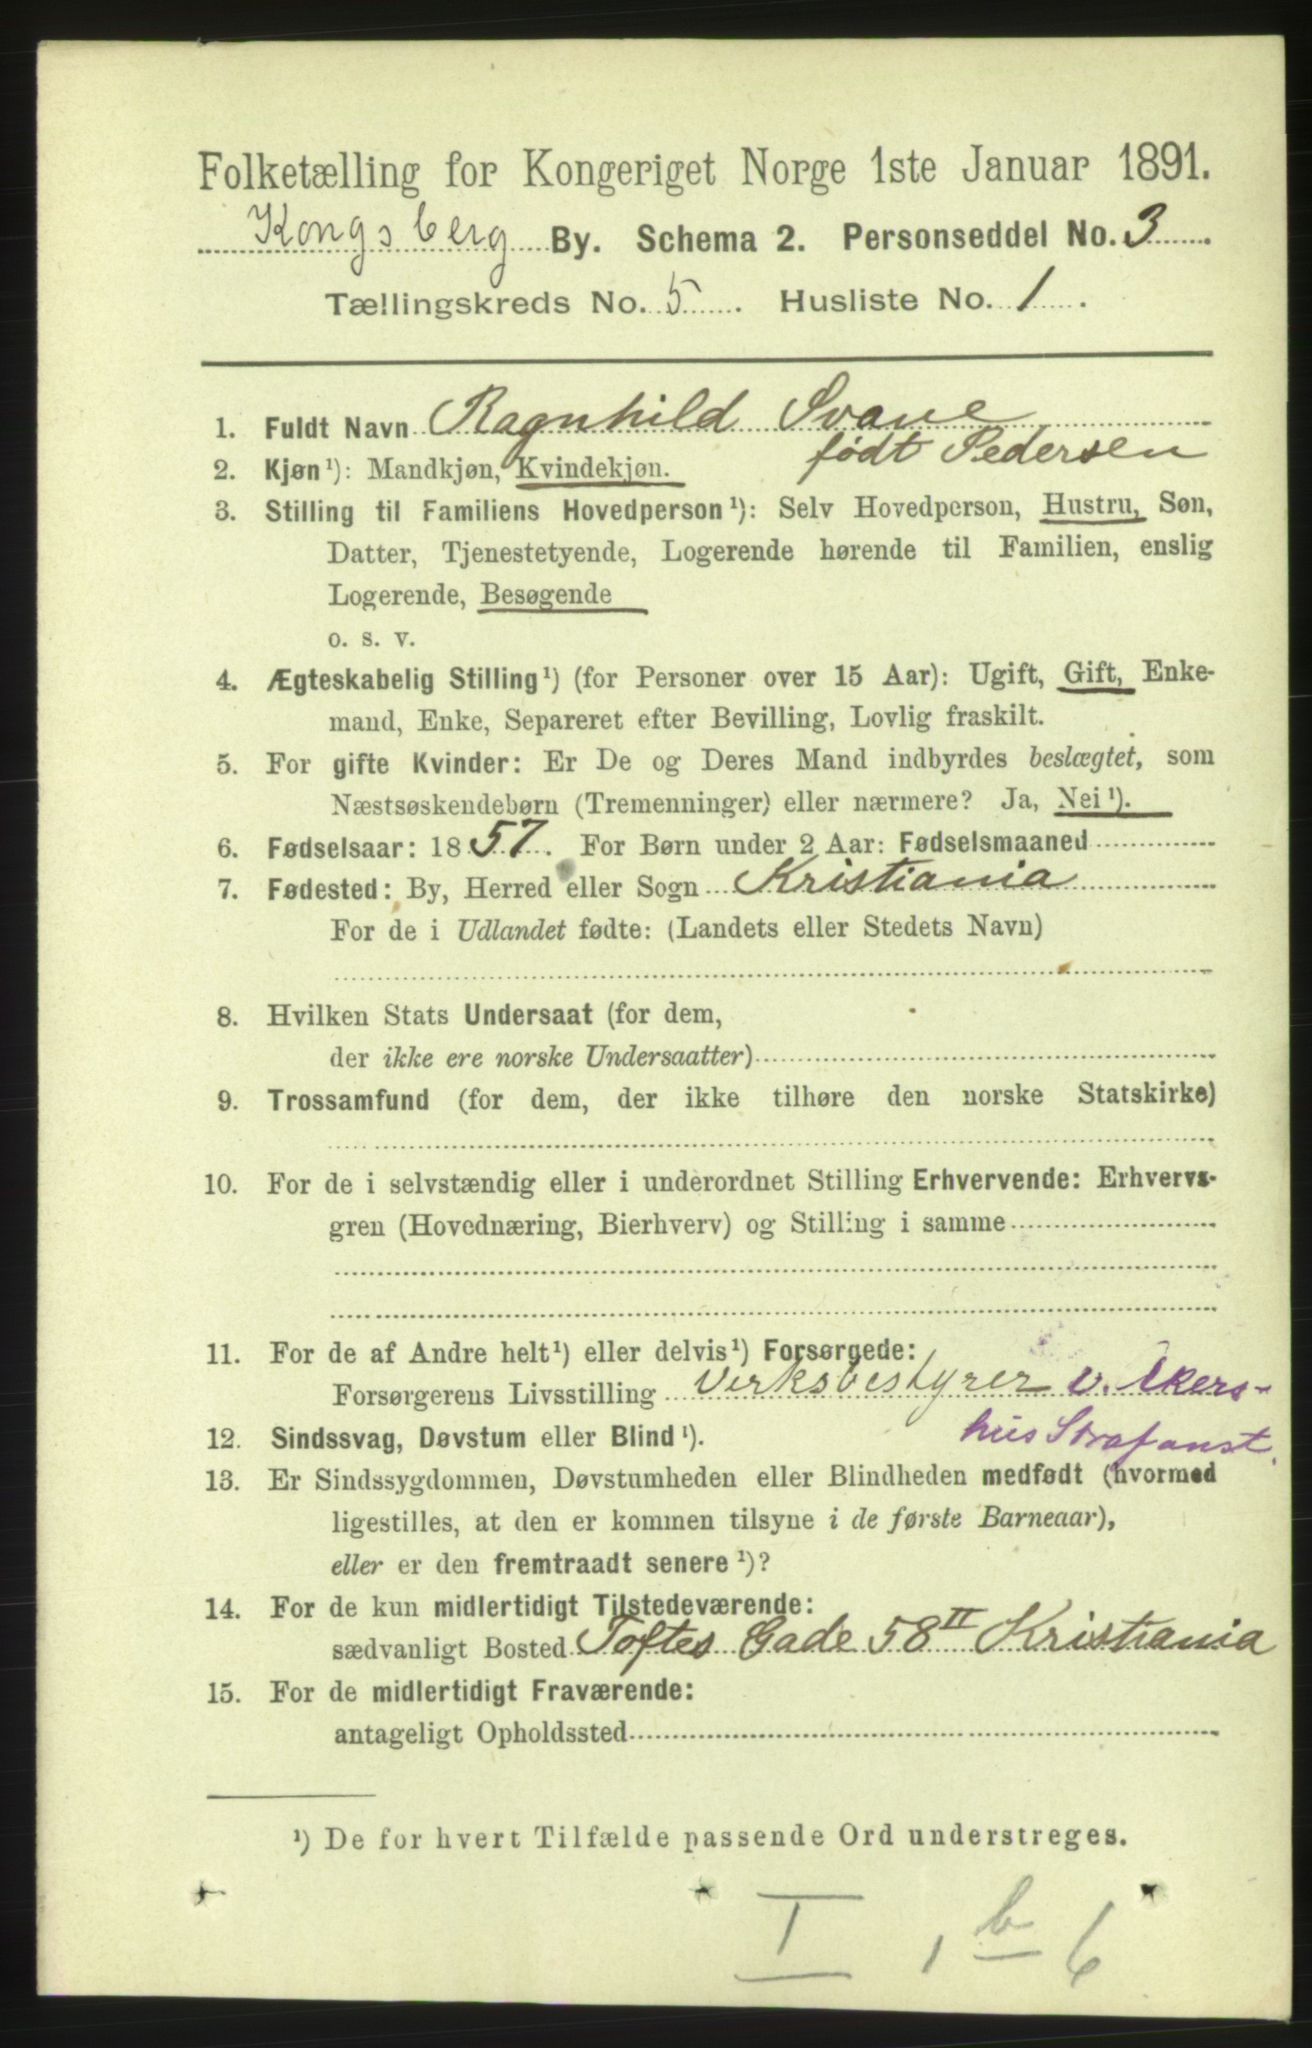 Folketælling for Kongeriget Norge 1ste Januar 1891.
Kongsberg By. Schema 2. Personseddel No. 3
Tællingskreds No. 5. Husliste No. 1.
1. Fuldt Navn Ragnhild Svane
født Pedersen
2. Kjøn¹): Mandkjøn, Kvindekjøn.
3. Stilling til Familiens Hovedperson¹): Selv Hovedperson, Hustru, Søn,
Datter, Tjenestetyende, Logerende hørende til Familien, enslig
Logerende, Besøgende
o. s. v.
4. Ægteskabelig Stilling¹) (for Personer over 15 Aar): Ugift, Gift, Enke-
mand, Enke, Separeret efter Bevilling, Lovlig fraskilt.
5. For gifte Kvinder: Er De og Deres Mand indbyrdes beslægtet, som
Næstsøskendebørn (Tremenninger) eller nærmere? Ja, Nei¹).
6. Fødselsaar: 1857. For Børn under 2 Aar: Fødselsmaaned
7. Fødested: By, Herred eller Sogn Kristiania
For de i Udlandet fødte: (Landets eller Stedets Navn)
8. Hvilken Stats Undersaat (for dem,
der ikke ere norske Undersaatter)
9. Trossamfund (for dem, der ikke tilhøre den norske Statskirke)
10. For de i selvstændig eller i underordnet Stilling Erhvervende: Erhvervs-
gren (Hovednæring, Bierhverv) og Stilling i samme
11. For de af Andre helt¹) eller delvis¹) Forsørgede:
Forsørgerens Livsstilling Verksbestyrer v. Akers-
hus Strafanst.
12. Sindssvag, Døvstum eller Blind¹).
13. Er Sindssygdommen, Døvstumheden eller Blindheden medfødt (hvormed
ligestilles, at den er kommen tilsyne i de første Barneaar),
eller er den fremtraadt senere¹)?
14. For de kun midlertidigt Tilstedeværende:
sædvanligt Bosted Toftes Gade 58 II Kristiania
15. For de midlertidigt Fraværende:
antageligt Opholdssted
¹) De for hvert Tilfælde passende Ord understreges.
I 1 b 6